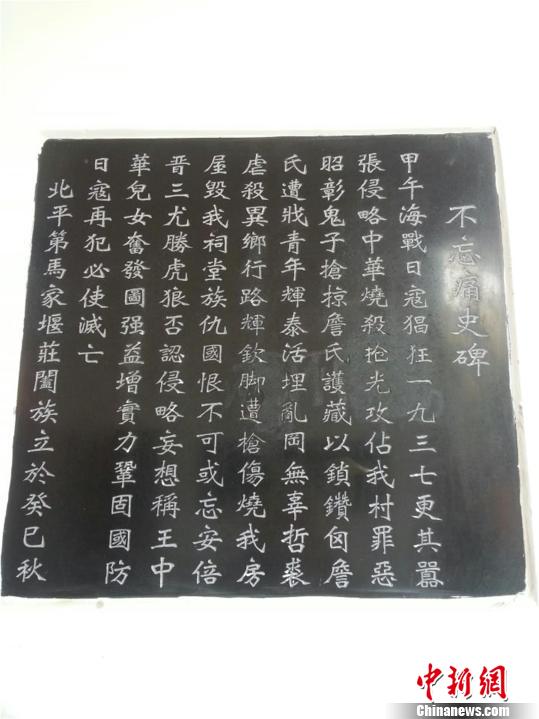 不忘痛史碑
甲午海戰日寇猖狂一九三七更其囂
張侵略中華燒殺抢光攻佔我村罪惡
昭彰鬼子搶掠詹氏護藏以鎖鑽囟詹
氏遭戕青年輝泰活埋亂岡無辜哲裘
虐殺異鄉行路輝欽脚遭槍傷燒我房
屋毀我祠堂族仇國恨不可或忘安倍
晋三尤勝虎狼否認侵略妄想稱王中
華兒女奮發圖强益增實力鞏固國防
日寇再犯必使滅亡
北平第馬家堰莊闔族立於癸巳秋
中新網
Chinanews.com